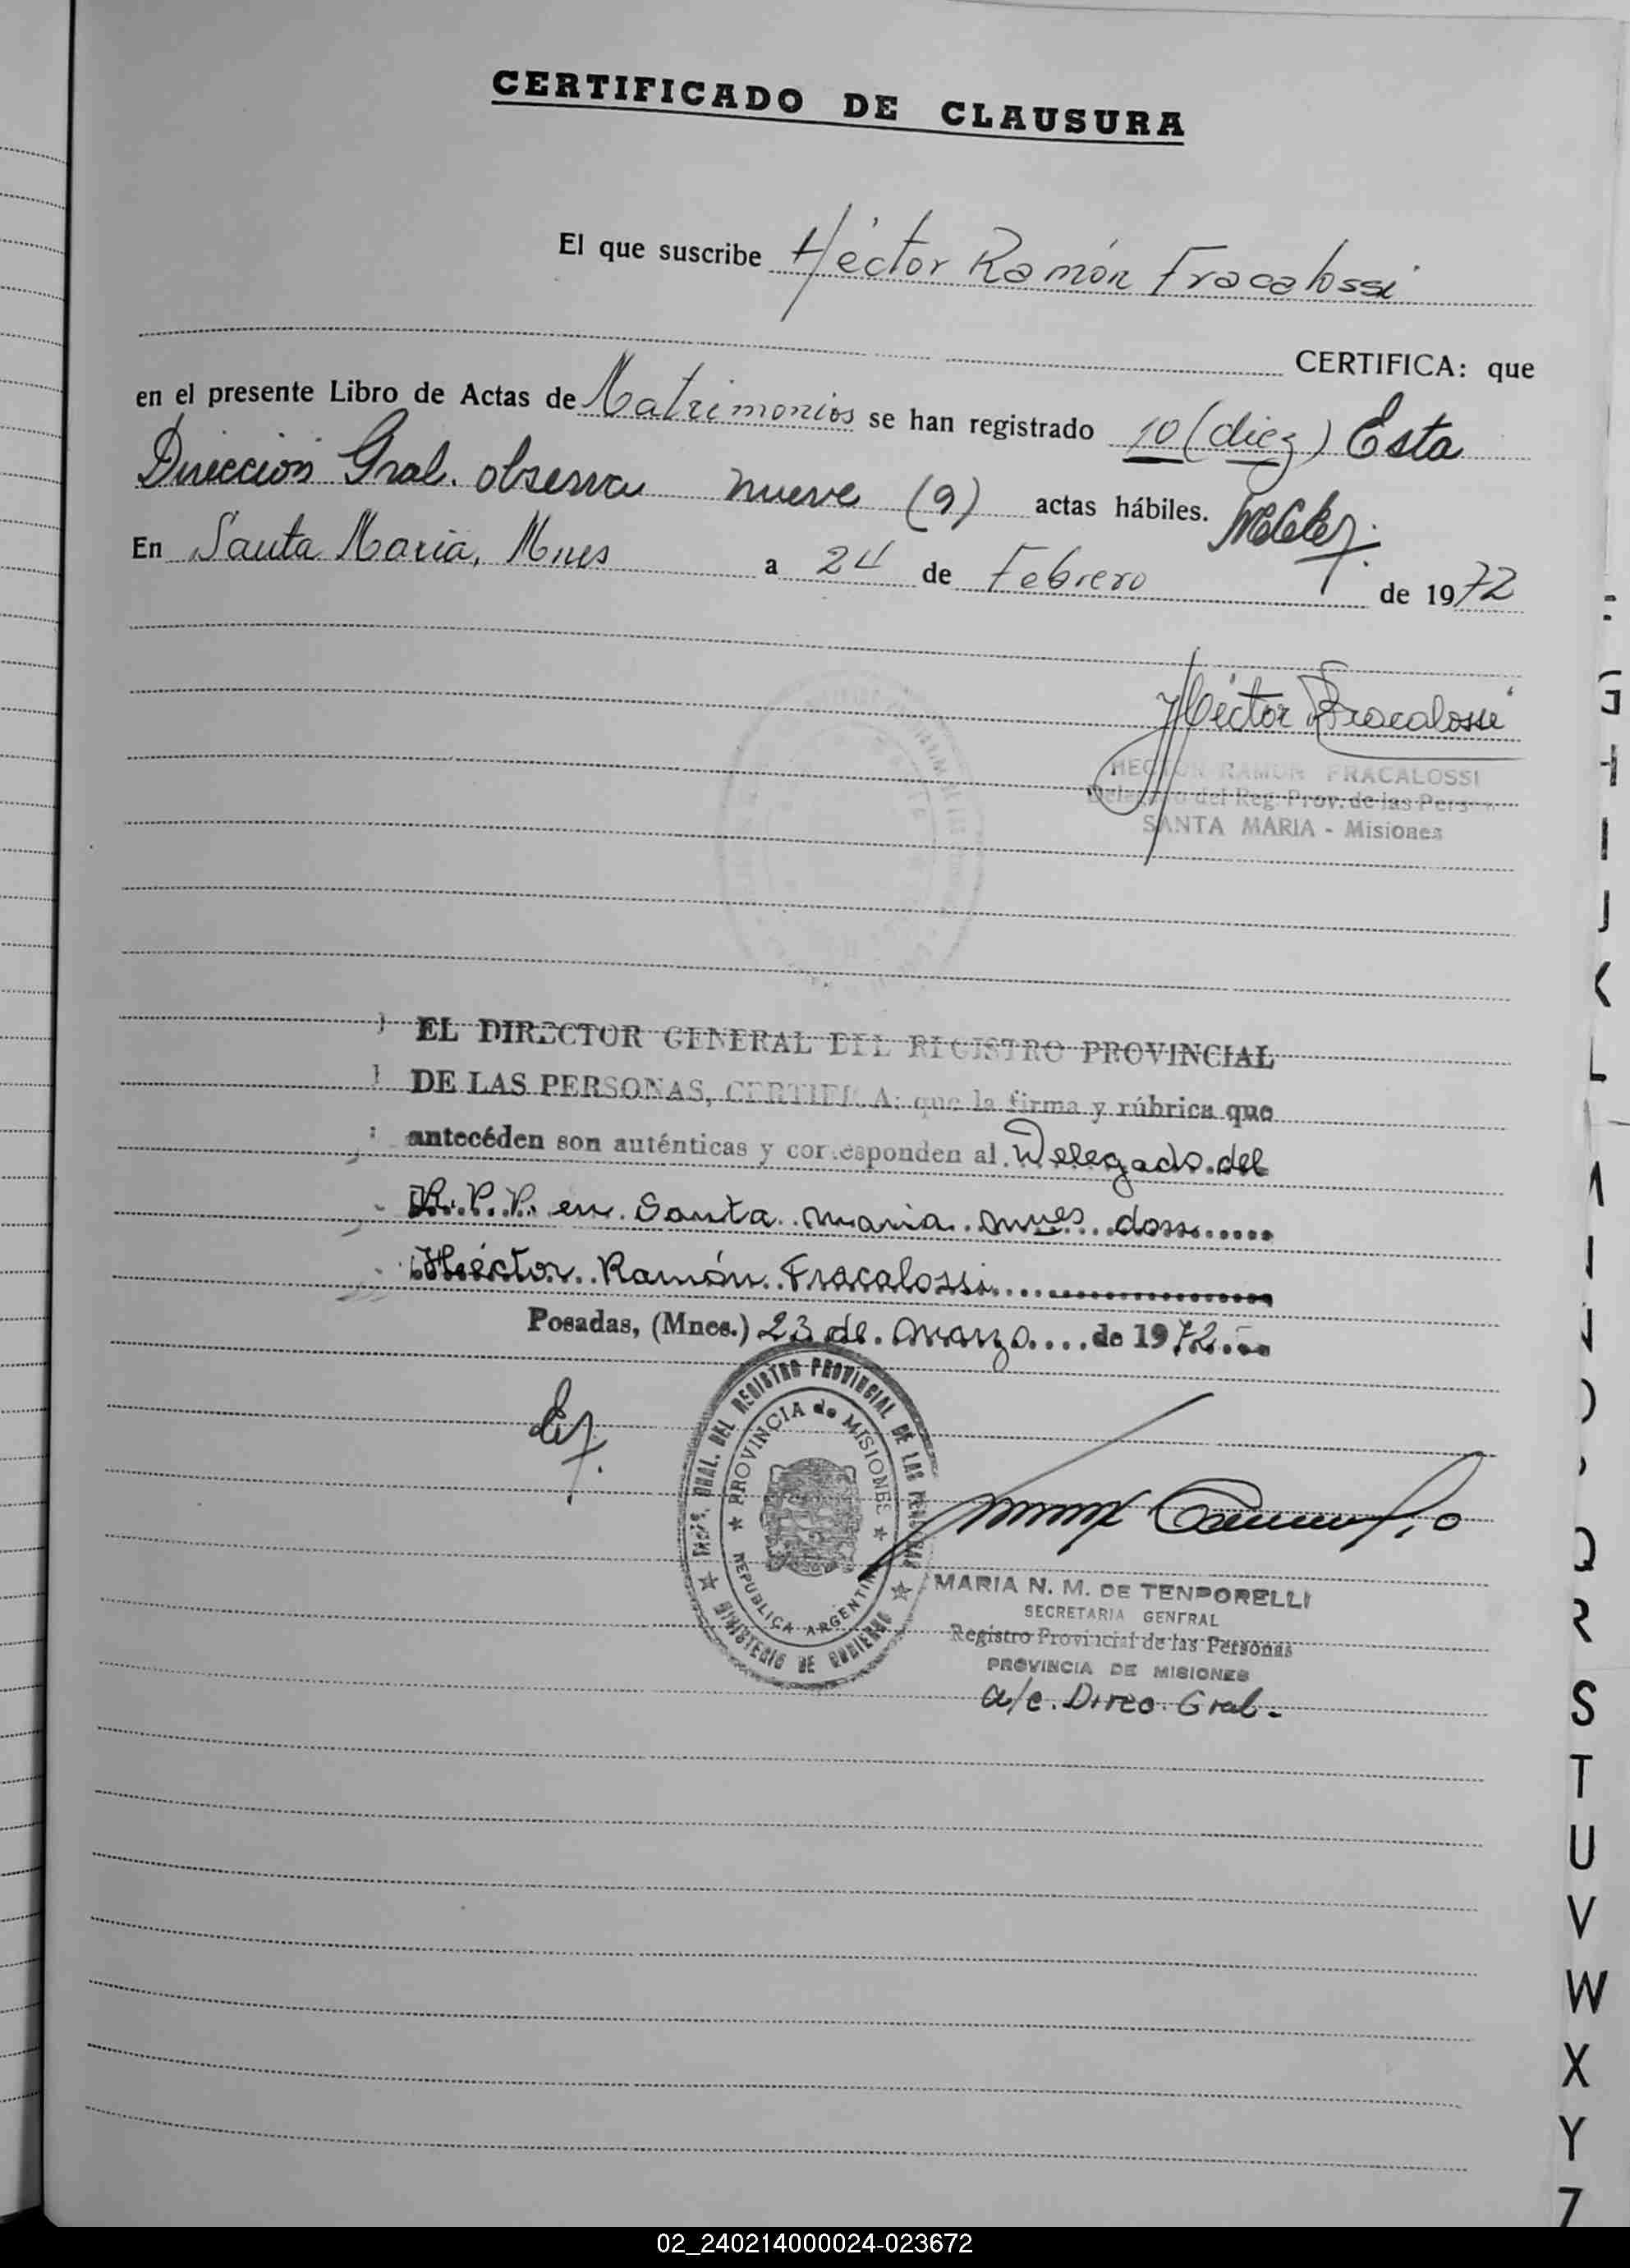 CERTIFICADO DE CLAUSURA
El que suscribe Héctor Ramón Fracalossi
CERTIFICA: que
en el presente Libro de Actas de Matrimonios se han registrado 10 (diez) Esta
Dirección Gral. observa nueve (9) actas hábiles.
En Santa Maria, Mnes a 24 de Febrero de 1972
Héctor R Fracalossi
HECTOR RAMON FRACALOSSI
Delegado del Reg. Prov. de las Person
SANTA MARIA - Misiones
EL DIRECTOR GENERAL DEL REGISTRO PROVINCIAL
DE LAS PERSONAS, CERTIFICA: que la firma y rúbrica que
antecéden son auténticas y corresponden al Delegado del
R.P.P. en Santa maria mnes don
Héctor Ramón Fracalossi
Posadas, (Mnes.) 23 de marzo de 1972
DREC. GRAL. DEL REGISTRO PROVINCIAL DE LAS PERSONAS
PROVINCIA de MISIONES
REPUBLICA ARGENTINA
MINISTERIO DE GOBIERNO
MARIA N. M. DE TENPORELLI
SECRETARIA GENERAL
Registro Provincial de las Personas
PROVINCIA DE MISIONES
a/c. Direc. Gral.-
G
H
I
J
K
L
Q
R
S
T
U
V
W
X
Y
Z
02_240214000024-023672